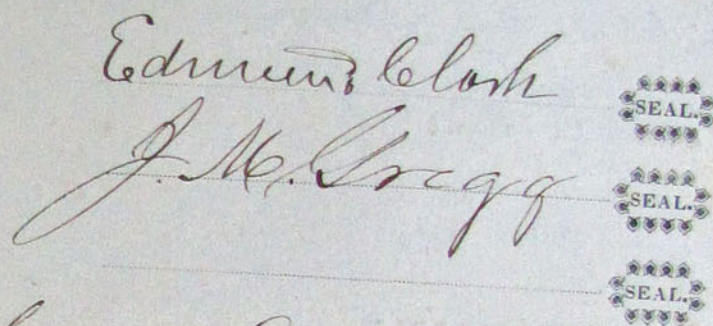 Edmund Clark SEAL.
J. M. Gregg SEAL.
SEAL.